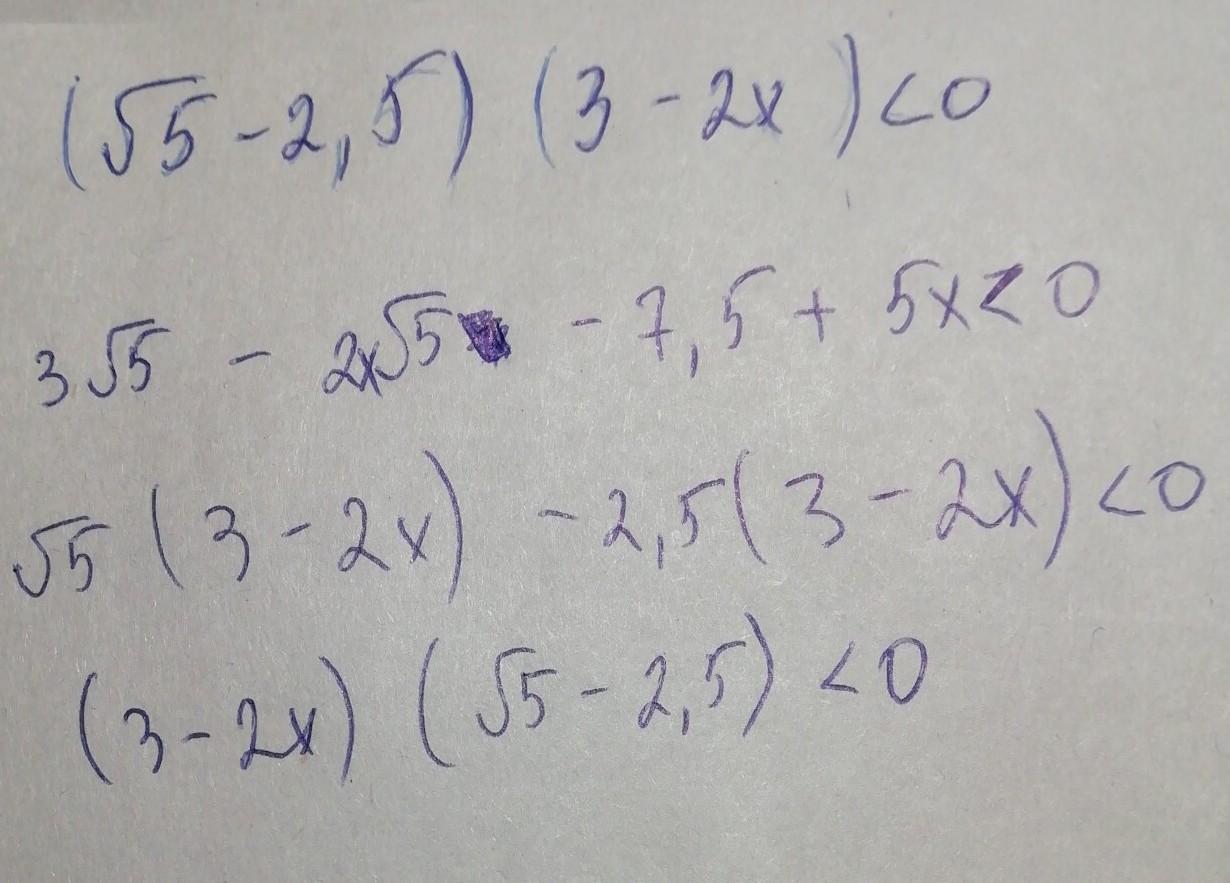 (√5 - 2,5) (3 - 2x) < 0
3√5 - 2x√5 - 7,5 + 5x < 0
√5 (3 - 2x) - 2,5 (3 - 2x) < 0
(3 - 2x) (√5 - 2,5) < 0